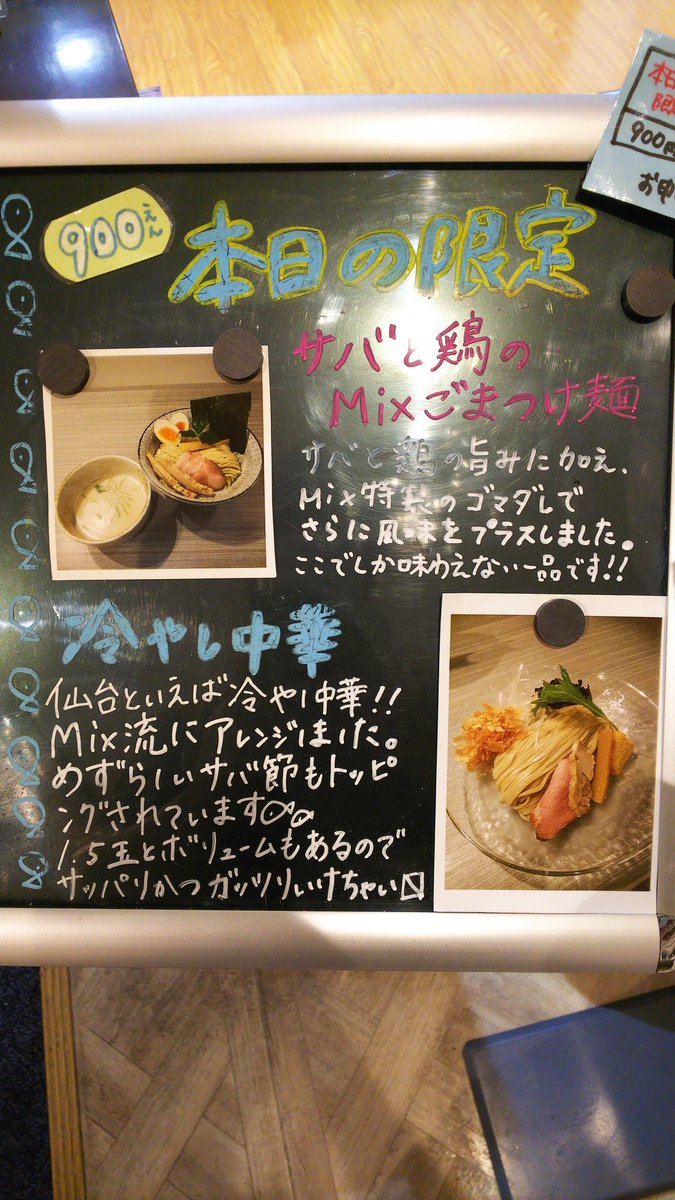 本日
限定
900円
お申
900えん
本日の限定
サバと鶏の
Mixごまつけ麺
サバと鶏の旨みに加え、
Mix特製のゴマダレで
さらに風味をプラスしました。
ここでしか味わえない一品です!!
冷やし中華
仙台といえば冷やし中華!!
Mix流にアレンジしました。
めずらしいサバ節もトッピ
ングされています
1.5玉とボリュームもあるので
サッパリかつガッツリいけちゃい〼